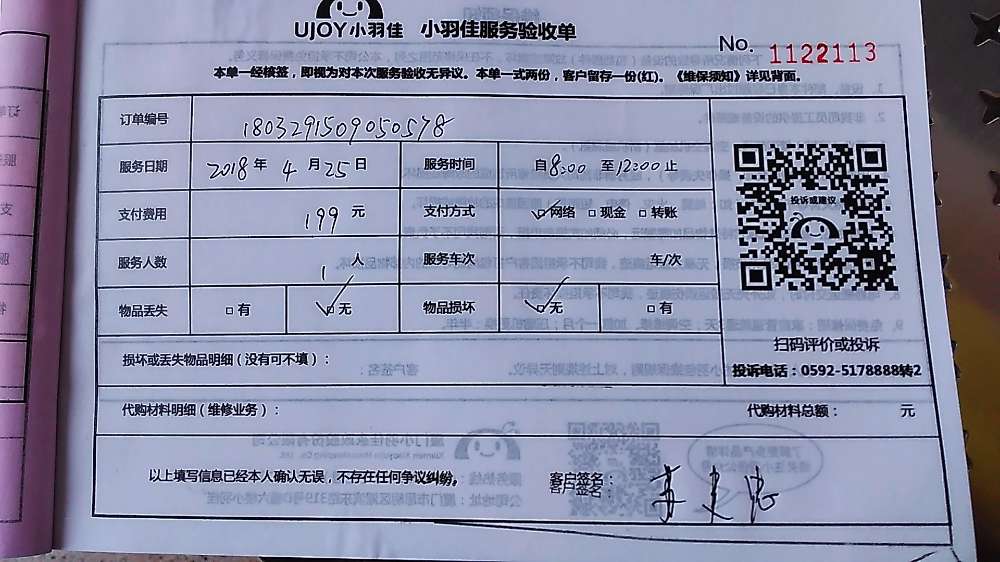 UJOY小羽佳 小羽佳服务验收单
No. 1122113
本单一经核签，即视为对本次服务验收无异议。本单一式两份，客户留存一份(红)。《维保须知》详见背面。
订单编号 1803291509050578
服务日期 2018年 4月 25日 服务时间 自8:00 至12:00止
支付费用 199元 支付方式 ☑网络 □现金 □转账
服务人数 1人 服务车次 车/次
物品丢失 □有 ☑无 物品损坏 ☑无 □有
投诉或建议
扫码评价或投诉
投诉电话：0592-5178888转2
损坏或丢失物品明细（没有可不填）：
代购材料明细（维修业务）： 代购材料总额： 元
以上填写信息已经本人确认无误，不存在任何争议纠纷。 客户签名：
客户签名：